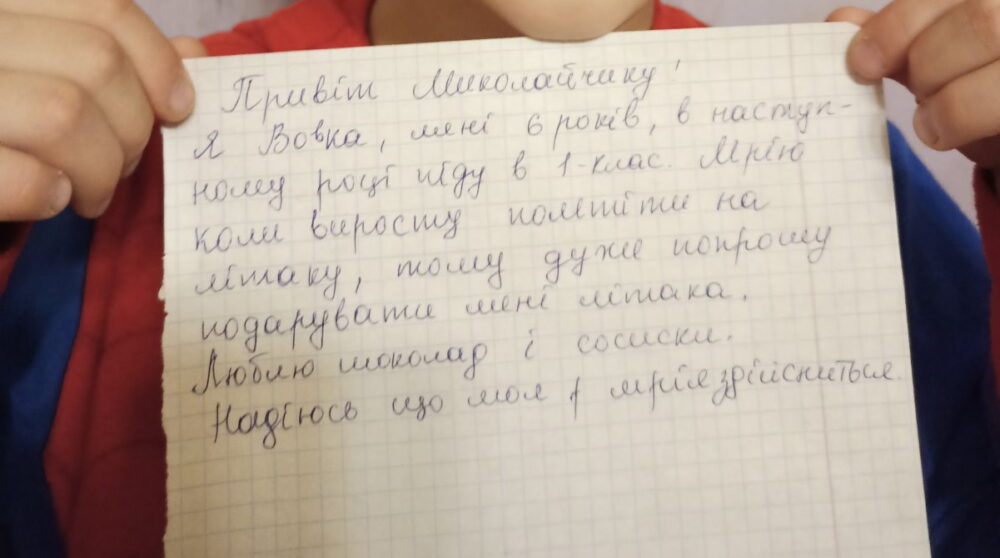 Привіт Миколайчику!
Я Вовка, мені 6 років, в наступ-
ному році піду в 1-клас. Мрію
коли виросту полетіти на
літаку, тому дуже попрошу
подарувати мені літака.
Люблю шоколад і сосиски.
Надіюсь що моя мрія здійсниться.